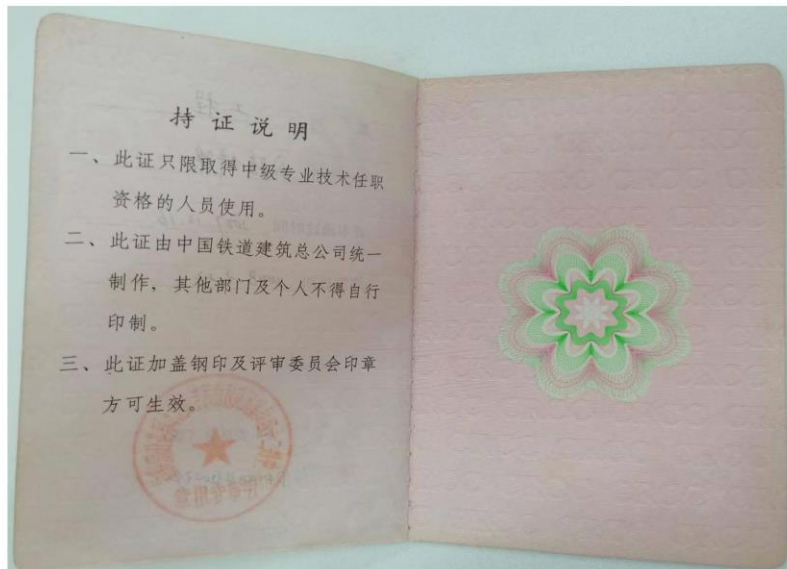 持证说明
一、此证只限取得中级专业技术任职
资格的人员使用。
二、此证由中国铁道建筑总公司统一
制作，其他部门及个人不得自行
印制。
三、此证加盖钢印及评审委员会印章
方可生效。